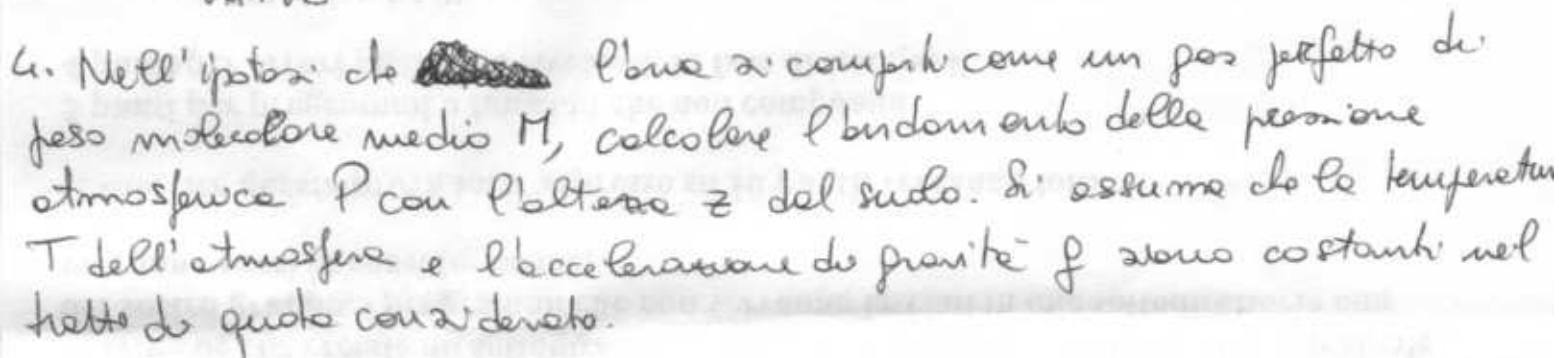 4. Nell'ipotesi che l'aria si comporti come un gas perfetto di
peso molecolare medio M, calcolare l'andamento della pressione
atmosferica P con l'altezza z dal suolo. Si assuma che la temperatura
T dell'atmosfera e l'accelerazione di gravità g siano costanti nel
tratto di quota considerato.